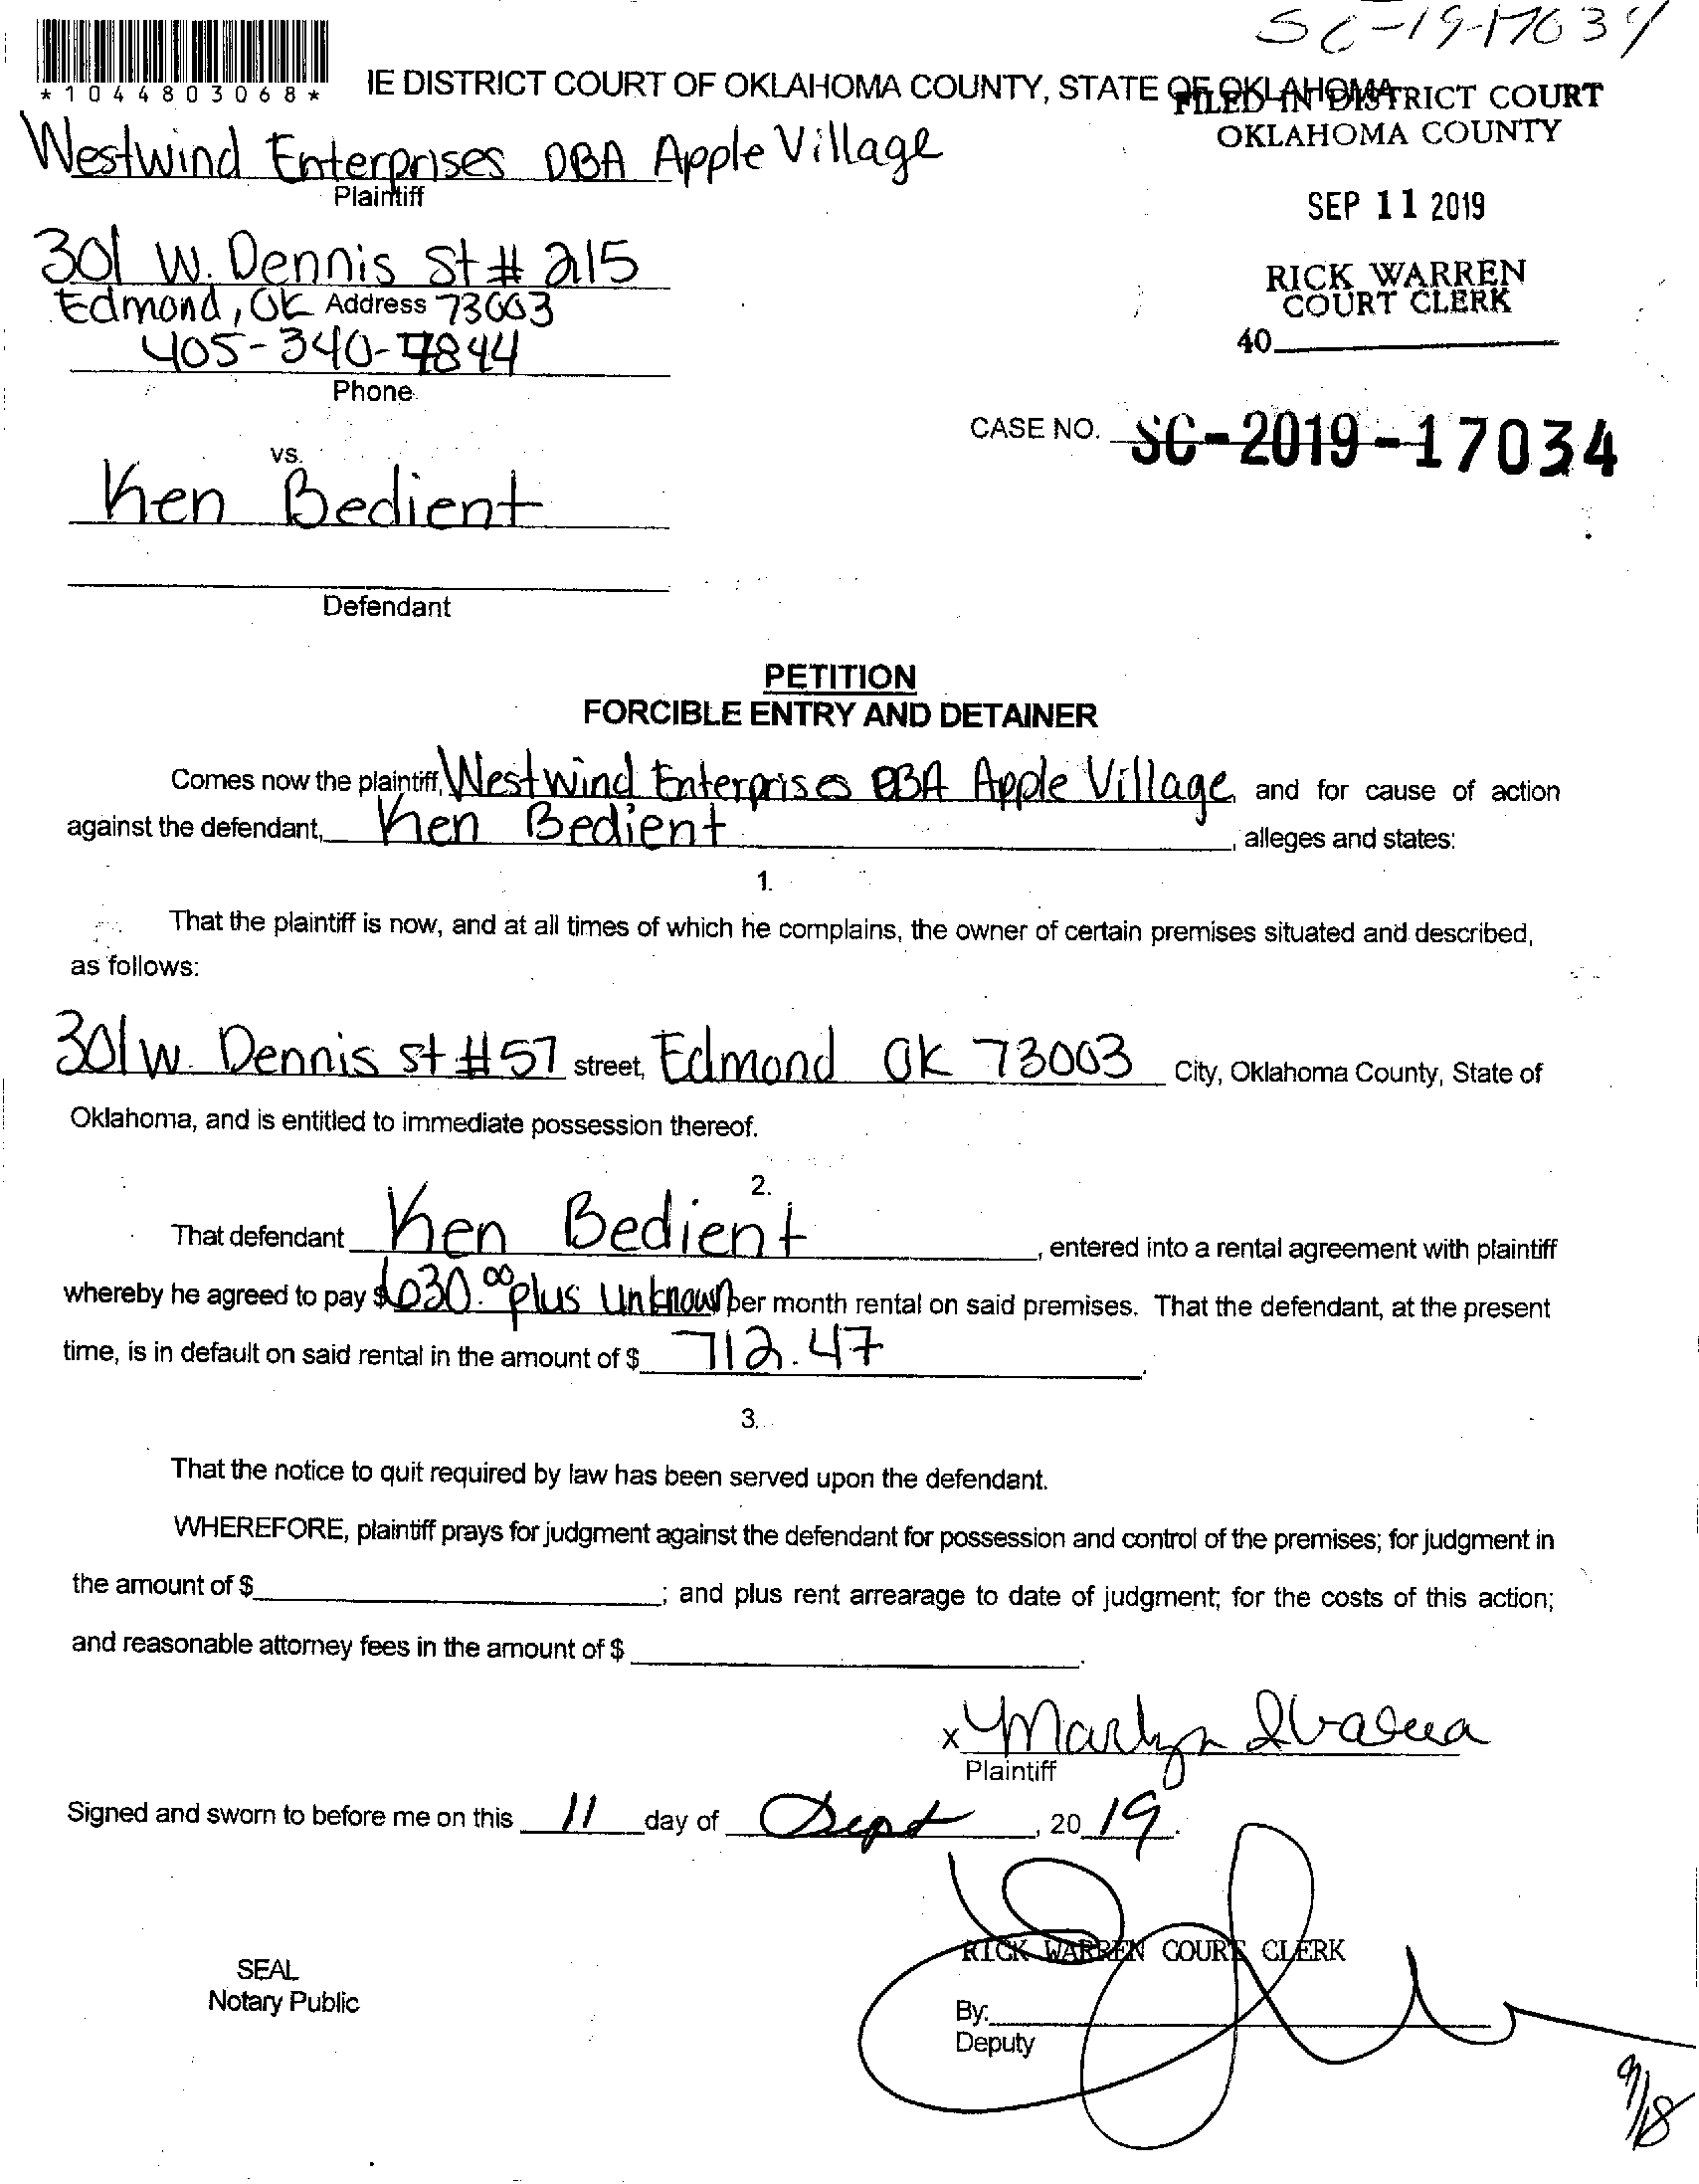 SC-19-17034
*1044803068*
IE DISTRICT COURT OF OKLAHOMA COUNTY, STATE OF OKLAHOMA
FILED IN DISTRICT COURT
OKLAHOMA COUNTY
Westwind Enterprises DBA Apple Village
Plaintiff
SEP 11 2019
301 W. Dennis St # 215
Edmond, OK Address 73003
RICK WARREN
COURT CLERK
405-340-7844
40
Phone
CASE NO. SC-2019-17034
vs.
Ken Bedient
Defendant
PETITION
FORCIBLE ENTRY AND DETAINER
Comes now the plaintiff, Westwind Enterprises DBA Apple Village, and for cause of action
against the defendant, Ken Bedient, alleges and states:
1.
That the plaintiff is now, and at all times of which he complains, the owner of certain premises situated and described,
as follows:
301 W. Dennis st #57 street, Edmond OK 73003 City, Oklahoma County, State of
Oklahoma, and is entitled to immediate possession thereof.
2.
That defendant Ken Bedient, entered into a rental agreement with plaintiff
whereby he agreed to pay $630.00 plus unknown per month rental on said premises. That the defendant, at the present
time, is in default on said rental in the amount of $ 712.47.
3.
That the notice to quit required by law has been served upon the defendant.
WHEREFORE, plaintiff prays for judgment against the defendant for possession and control of the premises; for judgment in
the amount of $ ; and plus rent arrearage to date of judgment; for the costs of this action;
and reasonable attorney fees in the amount of $ .
x Marlyn
Plaintiff
Signed and sworn to before me on this 11 day of Sept, 2019.
RICK WARREN COURT CLERK
SEAL
Notary Public
By:
Deputy
9/18